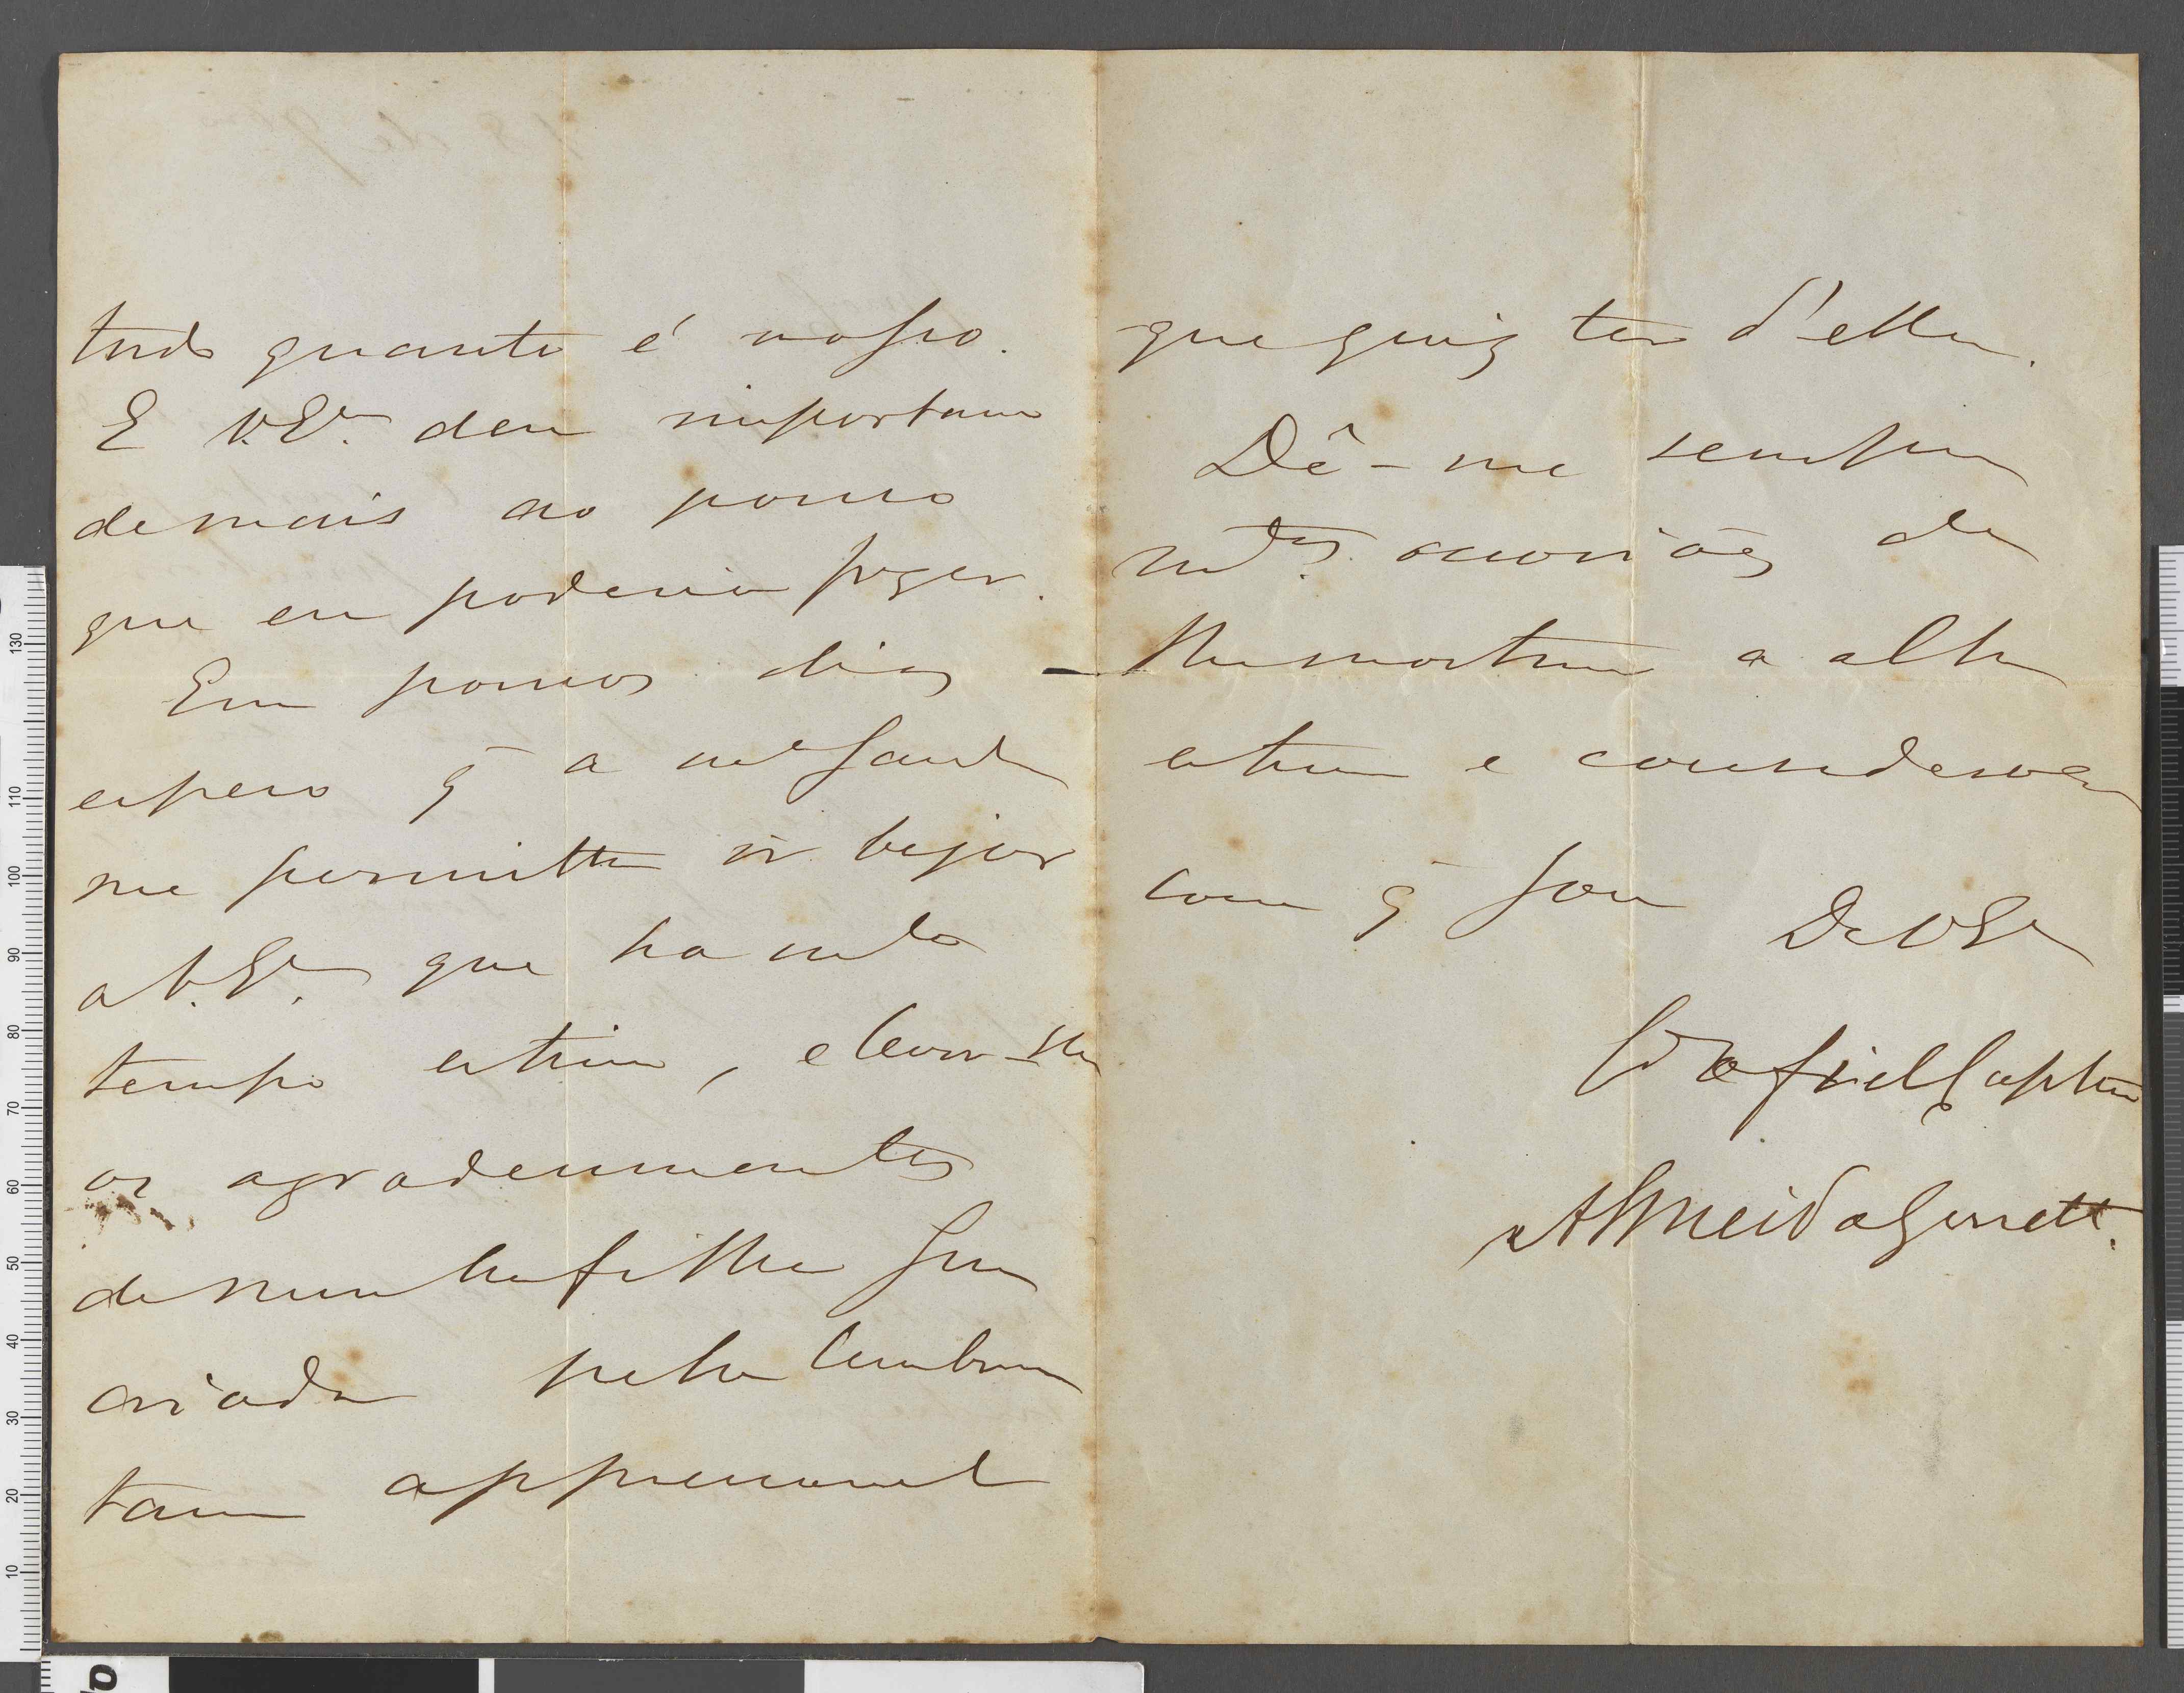 tudo quanto é nosso.
E V.Exª. deu importancia
demais ao pouco
que eu poderia fazer.
Em poucos dias
espero q̃ a mª saude
me permitta ir beijar
a V.Exª. que ha mto
tempo estimo, e levar-lhe
os agradecimentos
de minha filha Sua
criada pela lembrança
tam appreciavel
que quiz ter d'ella.
Dê-me sempre
mtas. occasiões de
lhe mostrar a alta
estima e consideração
com q̃ sou
De V Exª
fiel captivo
Almeida Garrett.
130
110
100
90
80
70
60
50
40
30
20
10